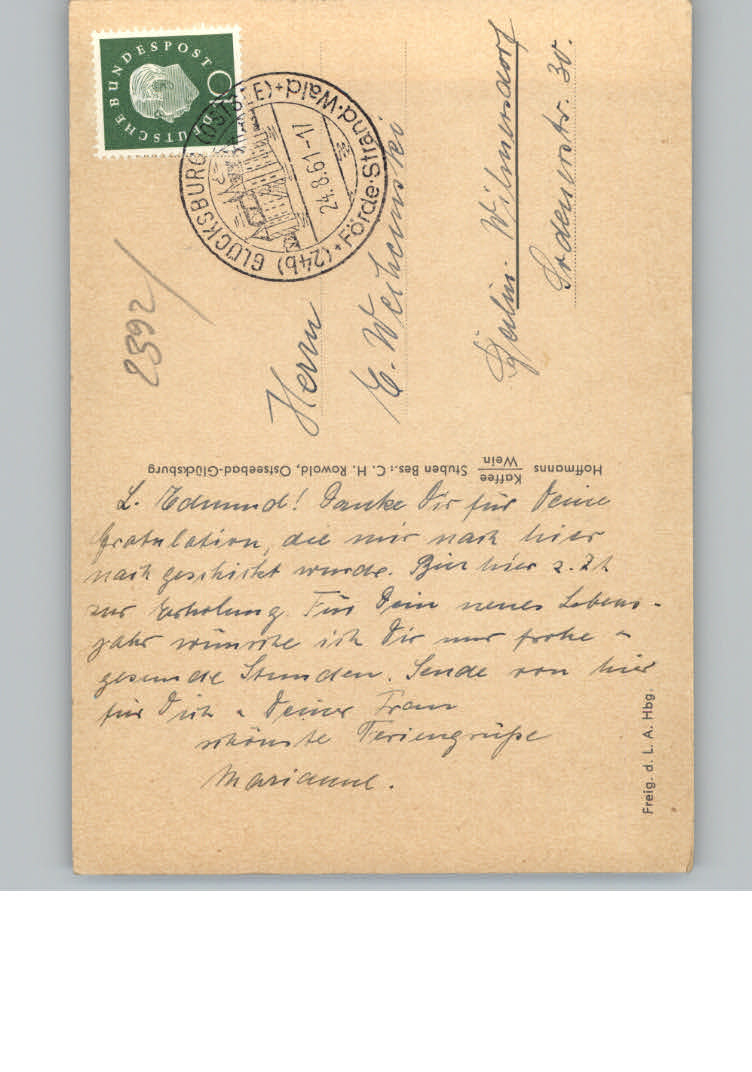 DEUTSCHE BUNDESPOST
(24b) GLÜCKSBURG (OSTSEE)
+ Förde · Strand · Wald +
24.8.61-17
2892
Herrn
E.
Berlin-Wilmersdorf
30.
Hoffmanns Kaffee Wein Stuben Bes.: C. H. Rowold, Ostseebad-Glücksburg
L. Edmund! Danke Dir für Deine
Gratulation, die mir nach hier
nach geschickt wurde. Bin hier z. Zt
zur Erholung. Für Dein neues Lebens-
jahr wünsche ich Dir nur frohe u
gesunde Stunden. Sende von hier
für Dich u Deiner Frau
schönste Feriengrüße
Marianne.
Freig. d. L. A. Hbg.